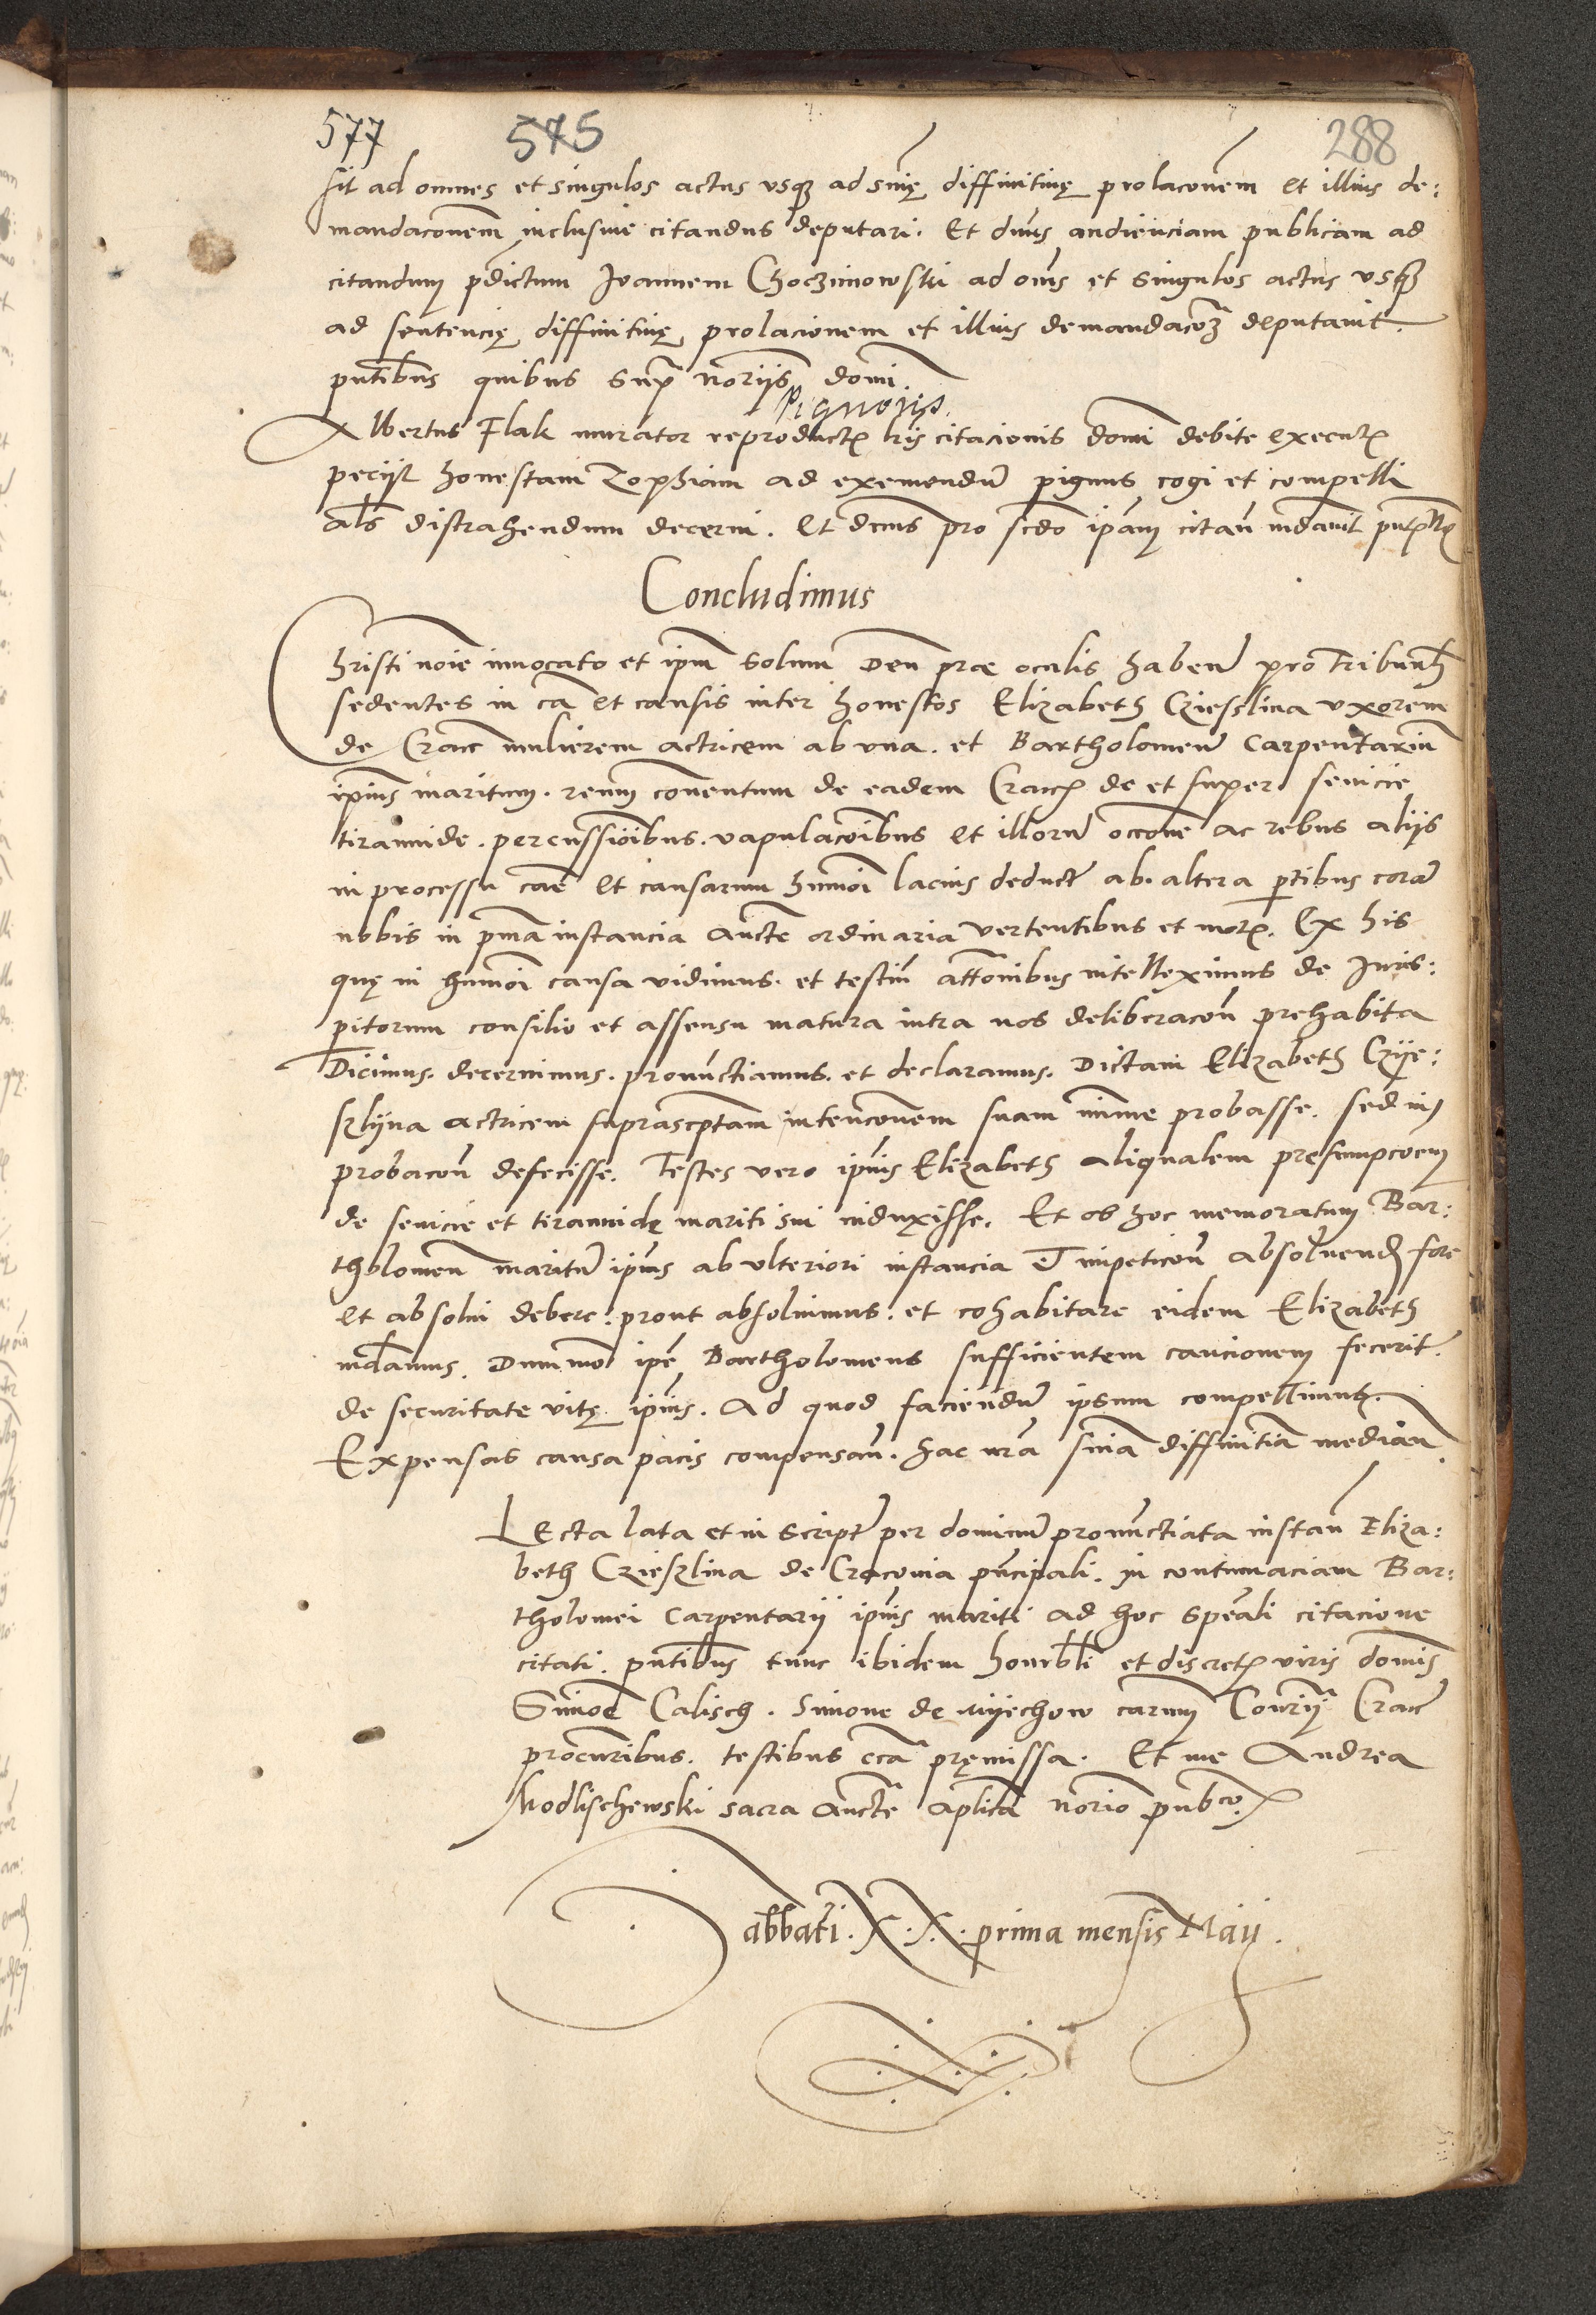 577 575 288
sit ad omnes et singulos actus vsq3 ad snīę diffinitiuę prolaconem et illius de:
mandaconem inclusiue citandus deputari. Et dnus audienciam publicam ad
citandum pdictum Joannem Choczimowski ad oms et singulos actus vsq3
ad sentencię diffinitiuę prolacionem et illius demandacoē deputauit.
pntibus quibus sup noriis domi
Pignoris.
Albertus Flak murator reproductis lris citacionis domi debite executis
peciit honestam Zophiam ad exemendū pignus cogi et compelli
als distrahendum decerni. Et dnus pro scdo ipam citari mdauit
Concludimus
Christi noīe inuocato et ipm solum Deū prae oculis habeñ pro Tribunli
sedentes in ca et causis inter honestos Elizabeth Cziesslina vxorem
de Cracc mulierem actricem ab vna. et Bartholomeū Carpentariū
ipius maritum. reum conuentum de eadem Cracc de et super seuicie
tirannide. percussioibus. vapulacoibus et illorū occone ac rebus aliis
in processu cae et causarum hmoi lacius deductis ab. altera ptibus corā
nobis in pma instancia aucte ordinaria vertentibus et motis. Ex his
quę in hmoi causa vidimus. et testiū attonibus intelleximus de Juris:
pitorum consilio et assensu matura intra nos deliberacon prehabita
Dicimus. decernimus. pronunctiamus. et declaramus. Dictam Elizabeth Czye:
slyna actricem suprascptam intenconem suam mīme probasse. sed in
probacon defecisse. Testes vero ipius Elizabeth aliqualem presumpcoem
de seuicie et tirannidę mariti sui induxisse. Et ob hoc memoratum Bar:
tholomeū maritū ipius ab vlteriori instancia et impeticon absoluend fore
et absolui debere: prout absoluimus. et cohabitare eidem Elizabeth
mdamus. Dummō ipe Bartholomeus sufficientem caucionem fecerit
de securitate vitę ipius. Ad quod faciendū ipsum compellimus.
Expensas causa pacis compensañ. hac nra snia diffinitia mediañ.
Lecta lata et in scriptis per dominū pronunctiata instañ Eliza:
beth Czieslina de Cracouia pncipali. in contumaciam Bar:
tholomei Carpentarii ipius mariti ad hoc speali citacione
citati. pntibus tunc ibidem honrbli et discretis viris domis
Simoē Calisch. Simone de Myechow Cracc
procuribus. testibus cca pręmissa. Et me Andrea
Modlischewski sacra aucte aplica norio pubco.
Sabbati. X.X. prima mensis Maij.